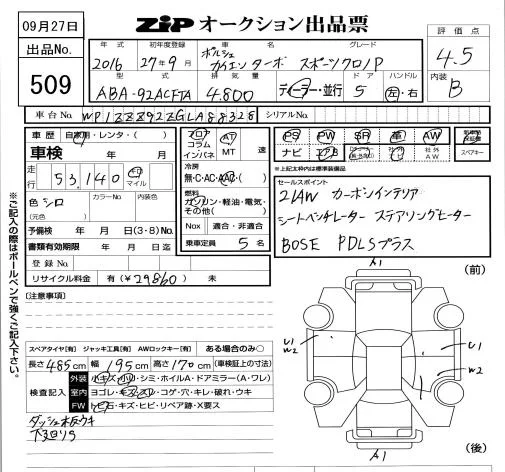 09月27日
出品No.
509
ZiP オークション出品票
評価点
4.5
内装
B
年式 初年度登録 車名 グレード
2016 27年9月 ポルシェ カイエン ターボ スポーツクロノP
型式 排気量 ドア ハンドル
ABA-92ACFTA 4.800 ディーラー・並行 5 左・右
車台No. WP1ZZZ92ZGLA88328 シリアルNo.
車歴 自家用・レンタ・( )
車検 年 月
走行 53,140 km マイル
色 シロ カラーNo. 内装色
(元色)
予備検 年 月 日(3・8)No.
書類有効期限 年 月 日迄
登録No.
リサイクル料金 有(¥29860) 未
フロア コラム インパネ
AT MT 速
冷房
無・C・AC・AAC( )
燃料
ガソリン・軽油・電気・その他( )
Nox 適合・非適合
乗車定員 5 名
PS PW SR 革 AW
ナビ TV 社外AW
スペアキー
※上記太枠内は標準装備品
セールスポイント
21AW カーボンインテリア
シートベンチレーター ステアリングヒーター
BOSE PDLSプラス
※ご記入の際はボールペンで強くご記入下さい。
[注意事項]
スペアタイヤ[有] ジャッキ工具[有] AWロックキー[有] ある場合のみ○
長さ 485cm 幅 195cm 高さ 170cm (車検証上の寸法)
検査記入
外装 小キズ・小凹・シミ・ホイルA・ドアミラー(A・ワレ)
室内 ヨゴレ・キズ・スレ・コゲ・穴・キレ・破れ・ウキ
FW トビ石・キズ・ヒビ・リペア跡・X要ス
ダッシュ板ウキ
下廻りサ
(前)
A1
U1
W2
U1
W2
A1
(後)